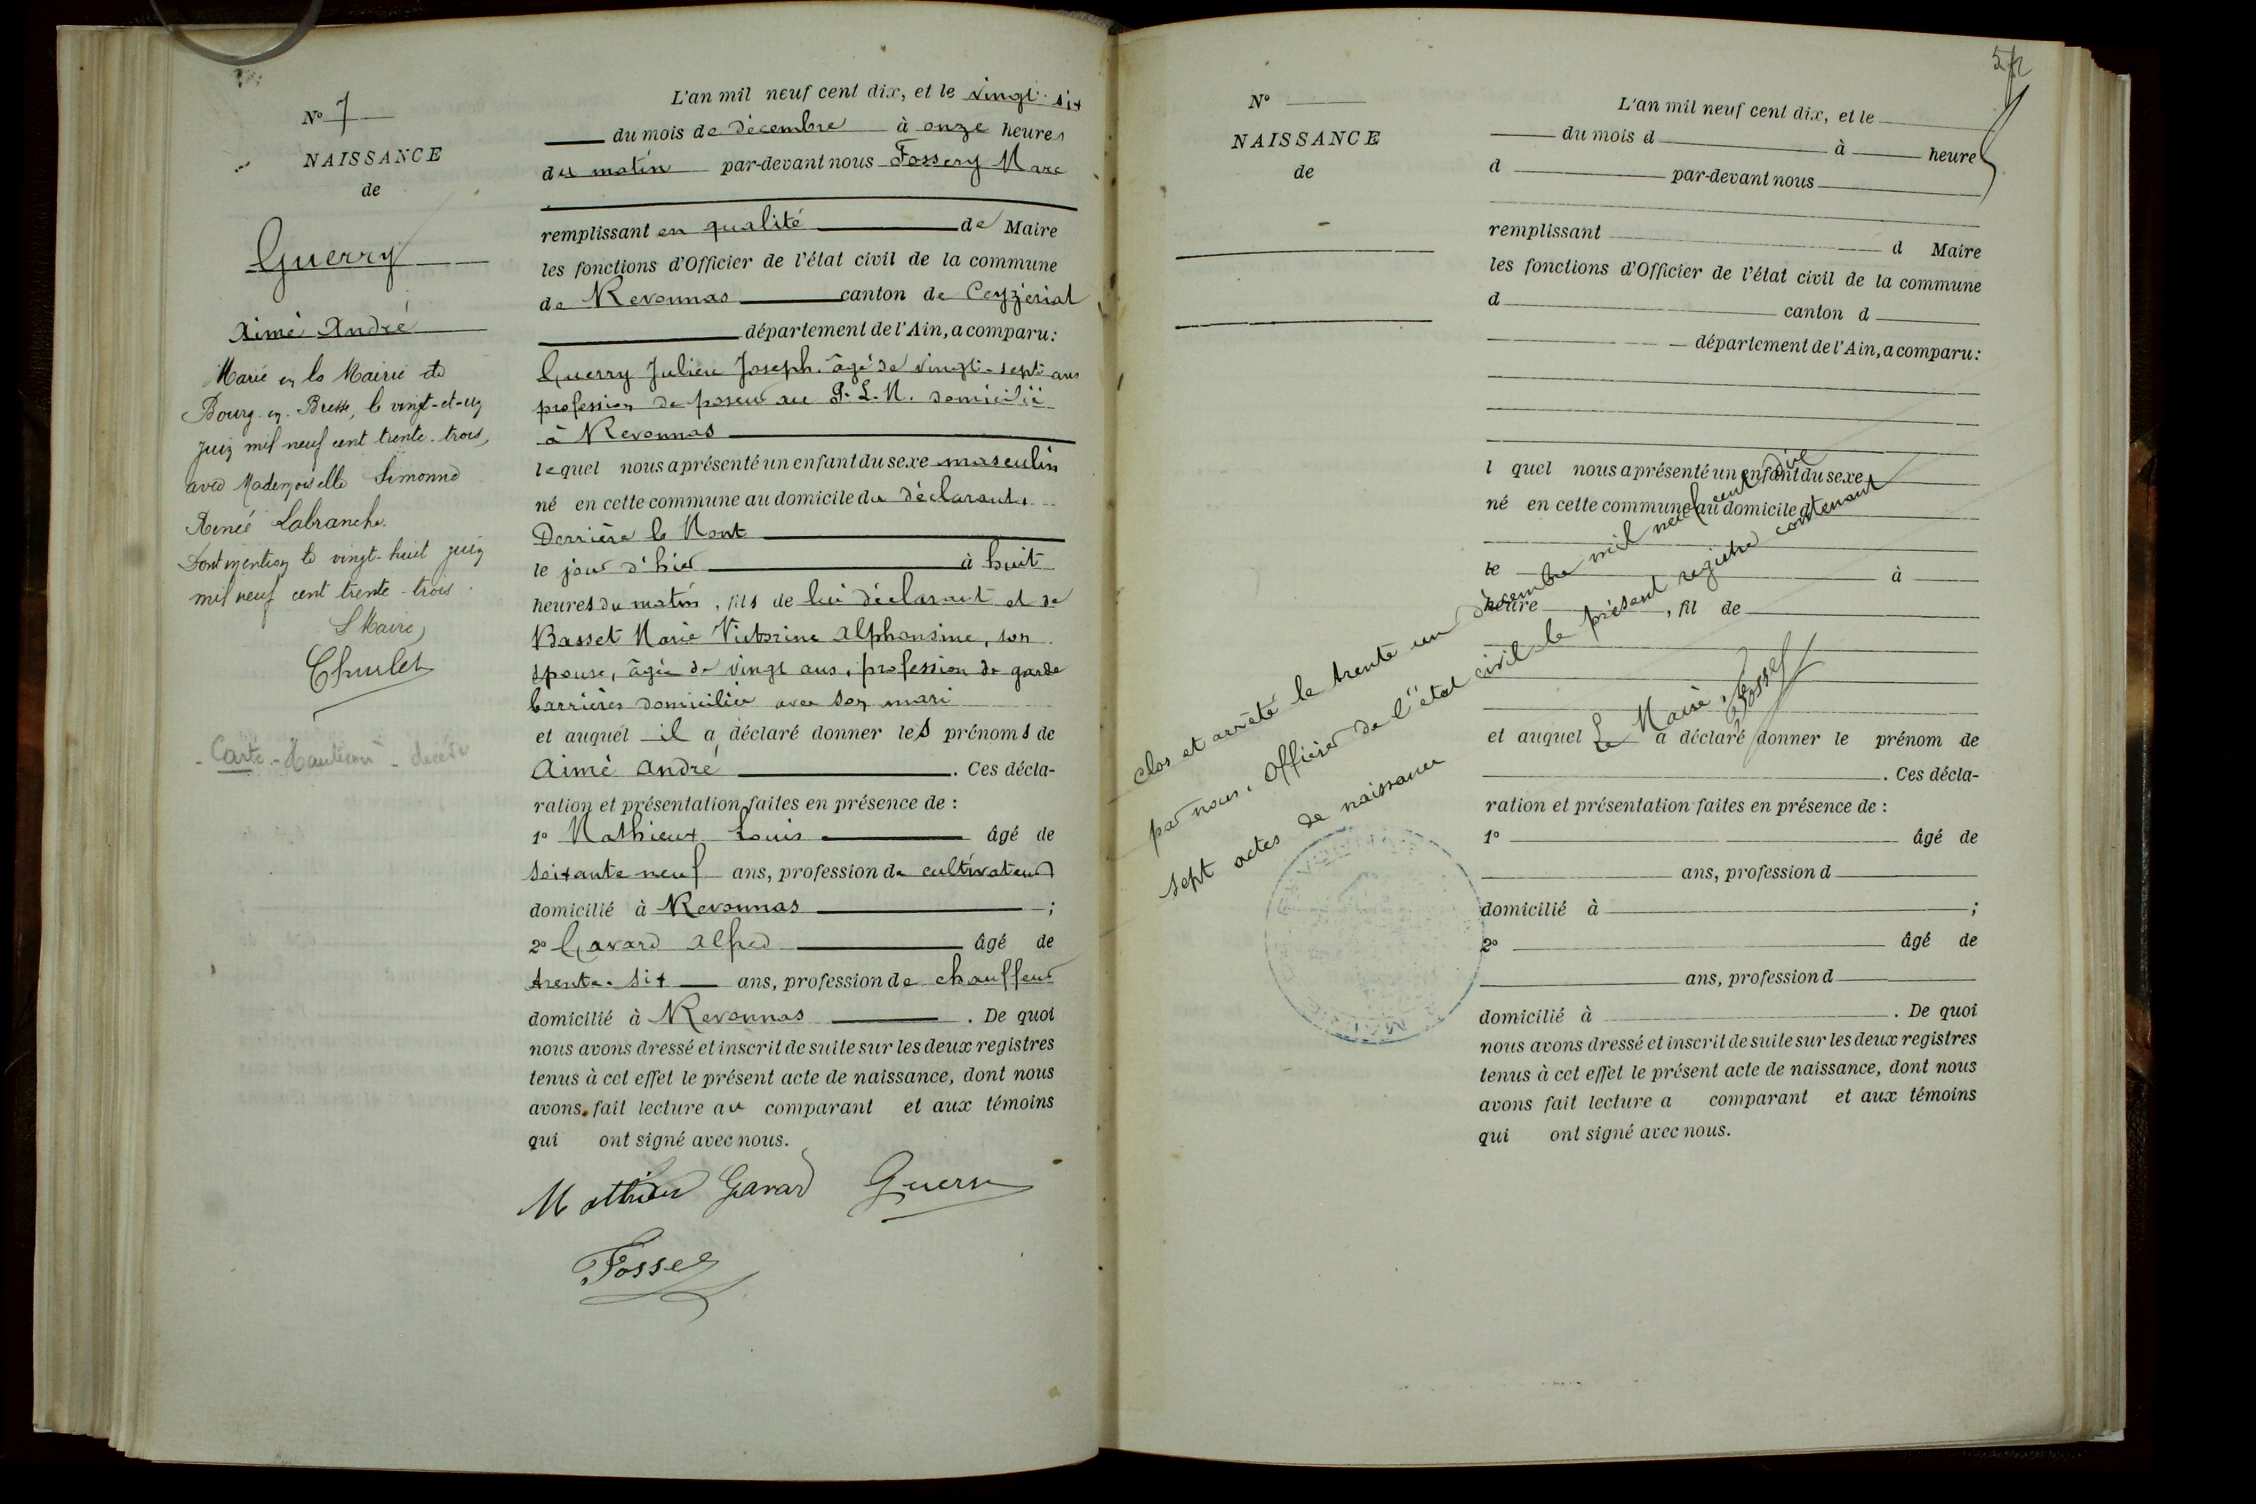 N° 7
NAISSANCE
de
Guerry
Aimé André
Marié en la Mairie de
Bourg-en-Bresse, le vingt-et-un
juin mil neuf cent trente-trois,
avec Mademoiselle Simonne
Renée Labranche.
Dont mention le vingt-huit juin
mil neuf cent trente-trois.
L Maire,
Carte
L'an mil neuf cent dix, et le vingt-six
du mois de décembre à onze heures
du matin par-devant nous Fossery Marc
remplissant en qualité de Maire
les fonctions d'Officier de l'état civil de la commune
de Revonnas canton de Ceyzériat
département de l'Ain, a comparu:
Guerry Julien Joseph. âgé de vingt-sept ans
profession de poseur au P. L. M. domicilié
à Revonnas
lequel nous a présenté un enfant du sexe masculin
né en cette commune au domicile du déclarant,
Derrière le Mont
le jour d'hier à huit
heures du matin, fils de lui déclarant et de
Basset Marie Victorine Alphonsine, son
épouse, âgée de vingt ans, profession de garde
barrières domiciliée avec son mari
et auquel il a déclaré donner les prénoms de
Aimé André. Ces décla-
ration et présentation faites en présence de :
1° Mathieux Louis âgé de
soixante neuf ans, profession de cultivateur
domicilié à Revonnas ;
2° Gavard Alfred âgé de
trente-six ans, profession de chauffeur
domicilié à Revonnas. De quoi
nous avons dressé et inscrit de suite sur les deux registres
tenus à cet effet le présent acte de naissance, dont nous
avons fait lecture au comparant et aux témoins
qui ont signé avec nous.
Mathieu Gavard Guerry
N°
NAISSANCE
de
L'an mil neuf cent dix, et le
du mois d à heure
d par-devant nous
remplissant d Maire
les fonctions d'Officier de l'état civil de la commune
d canton d
département de l'Ain, a comparu:
l quel nous a présenté un enfant du sexe
né en cette commune au domicile d
le à
heure, fil de
et auquel a déclaré donner le prénom de
. Ces décla-
ration et présentation faites en présence de :
1° âgé de
ans, profession d
domicilié à ;
2° âgé de
ans, profession d
domicilié à . De quoi
nous avons dressé et inscrit de suite sur les deux registres
tenus à cet effet le présent acte de naissance, dont nous
avons fait lecture a comparant et aux témoins
qui ont signé avec nous.
Clos et arrêté le trente un décembre mil neuf cent dix
par nous, Officier de l'état civil le présent registre contenant
sept actes de naissance
Le Maire,